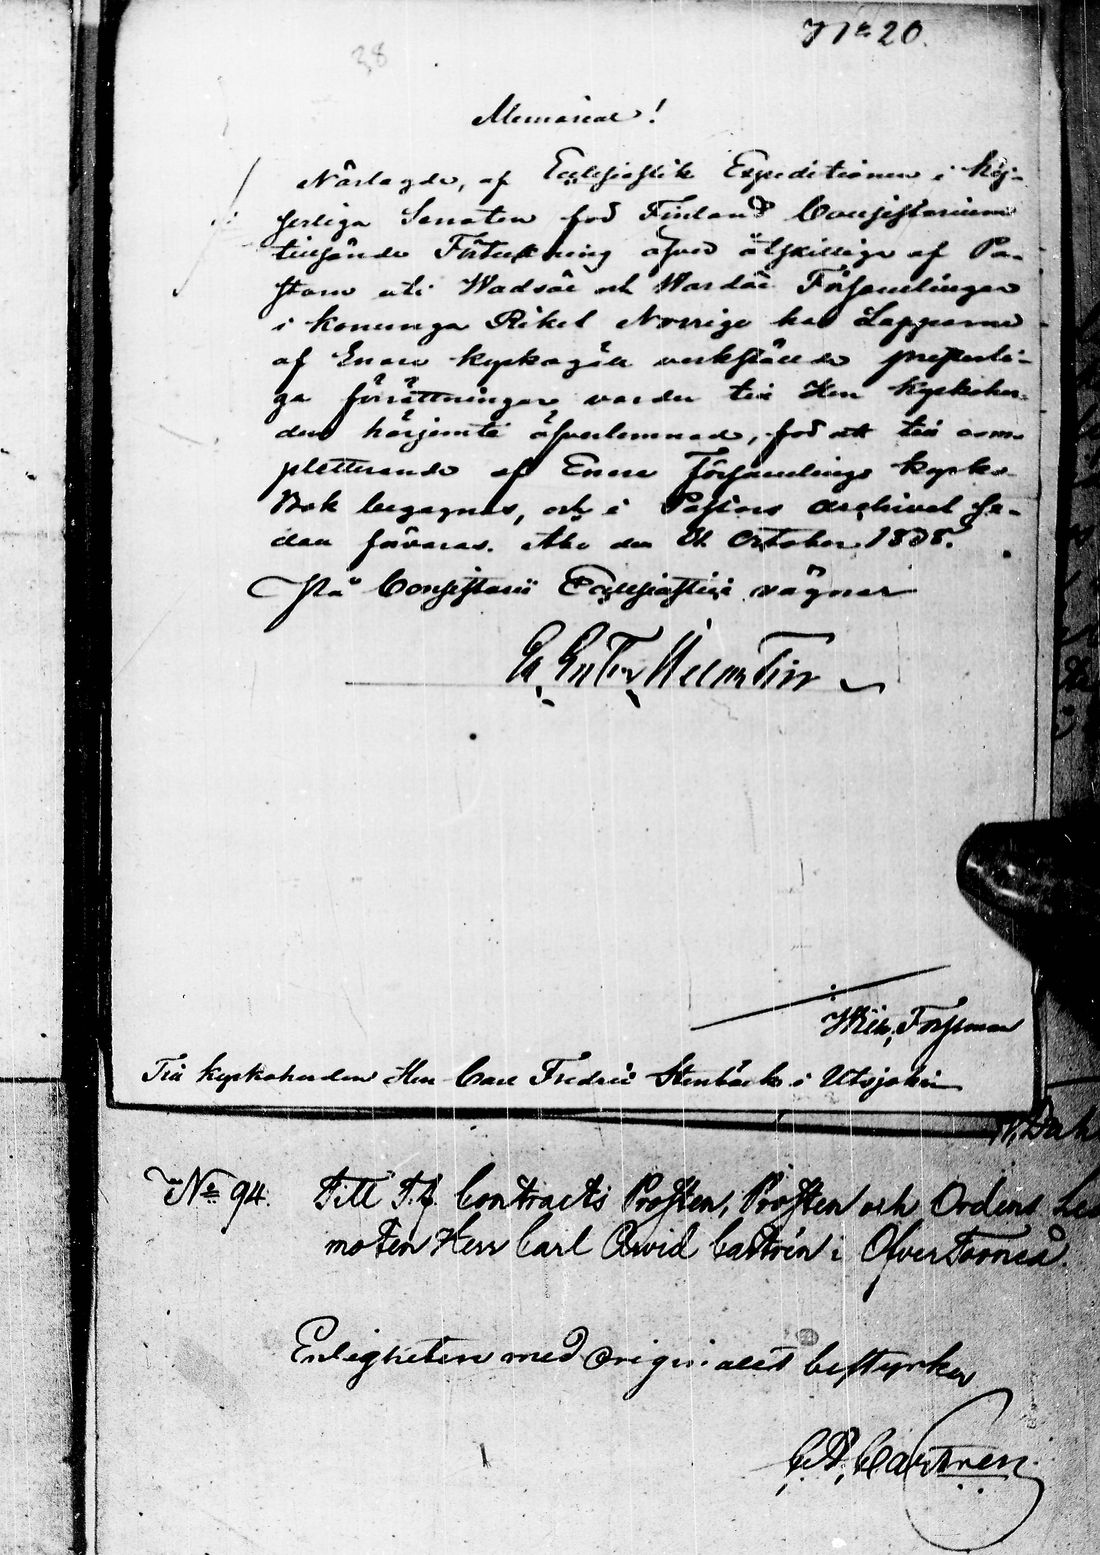 N:o 20.
38
Memorial!
Närlagde, af Ecclesiastik Expeditionen i Kej-
serliga Senaten för Finland Consistorium
tillsände Förtekning öfver åtskillige af Pa-
storn uti Wadsöe och Wardöe Församlingar
i Konunga Riket Norrige hos Lapparne
af Enare kyrkogäll verkstälde presterli-
ga förrättningar varder till Herr Kyrkoher-
den härjemte öfverlemnad, för att till com-
pletterande af Enare Församlings kyrko
Bok begagnas, och i Pastors Archivet se-
dan förvaras. Åbo den October 1838.
På Consistorii Ecclesiastici vägnar
Wilh. Forssman
Till Kyrkoherden Herr Carl Fredric Stenbäck i Utsjoki
No 94. Till T.f. Contracts Prosten, Prosten och Ordens Led
moten Herr Carl Arvid Castrén i Öfver Torneå.
Enligheten med originalet bestyrker
C. A. Castrén